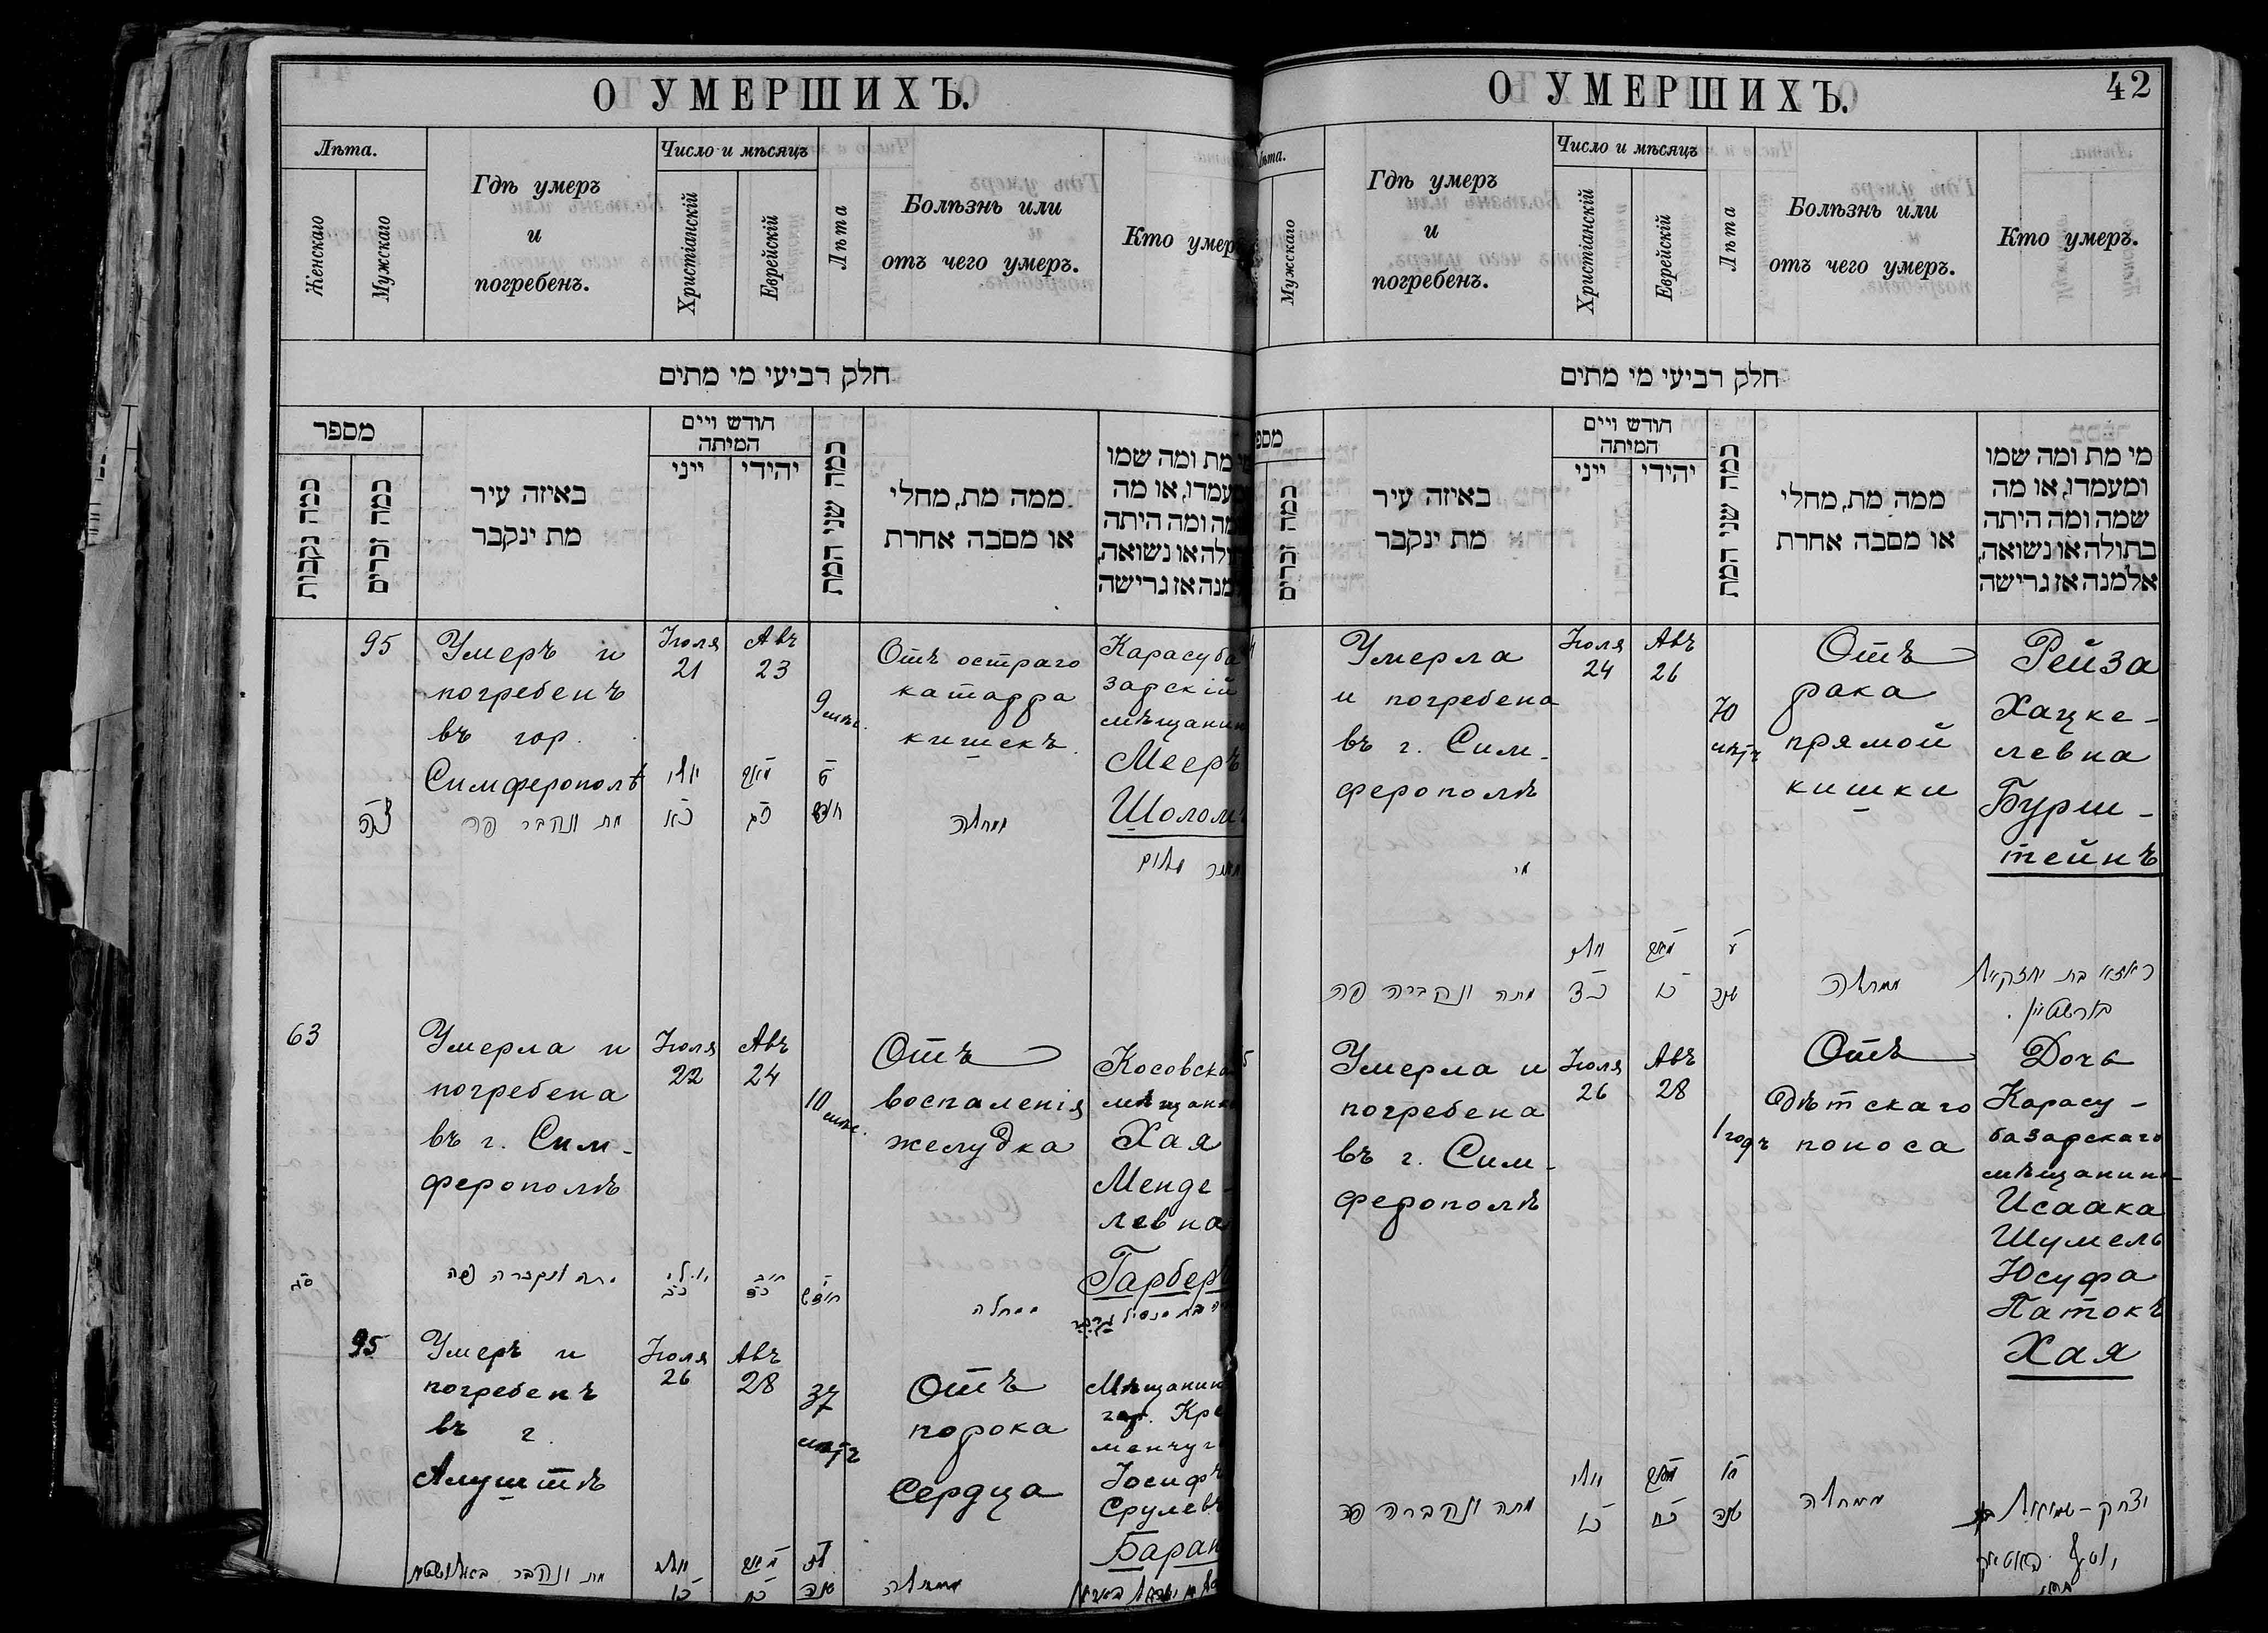 О УМЕРШИХЪ.
Лѣта.
Женскаго
Мужскаго
Гдѣ умеръ
и
погребенъ.
Число и мѣсяцъ
Христіанскій
Еврейскій
Лѣта
Болѣзнь или
отъ чего умеръ.
Кто умер
חלק רביעי מי מתים
מספר
כמה נקבות
כמה זכרים
באיזה עיר
מת ינקבר
חודש ויים
המיתה
ייני
יהידי
כמה שני המת
ממה מת, מחלי
או מסבה אחרת
מת ומה שמו
ומעמדו, או מה
מה ומה היתה
ולה או נשואה,
מנה אז גרישה
95
Умеръ и
погребенъ
въ гор.
Симферополѣ
Іюля
21
Авъ
23
9 мѣс.
Отъ остраго
катарра
кишекъ.
Карасуба
зарскій
мѣщанин
Мееръ
Шолом
צה
מת ונקבר פה
יולי
כא
כג
ט
חודש
ממחלה
מאיר שלום
63
Умерла и
погребена
въ г. Сим-
ферополѣ
Іюля
22
Авъ
24
10 мѣс.
Отъ
воспаленія
желудка
Косовска
мѣщанк
Хая
Менде-
левна
Гарбер
סג
מתה ונקברה פה
יולי
כב
כד
י
חודש
ממחלה
95
Умеръ и
погребенъ
въ г.
Алуштѣ
Іюля
26
Авъ
28
37
лѣтъ
Отъ
порока
Сердца
Мѣщанин
гор. Кре
менчуг
Іосифъ
Срулев
Баран
מת ונקבר באלושטא
יולי
כו
כח
לז
שנה
ממחלה
О УМЕРШИХЪ.
42
Лѣта.
Мужскаго
Гдѣ умеръ
и
погребенъ.
Число и мѣсяцъ
Христіанскій
Еврейскій
Лѣта
Болѣзнь или
отъ чего умеръ.
Кто умеръ.
חלק רביעי מי מתים
מספ
כמה זכרים
באיזה עיר
מת ינקבר
חודש ויים
המיתה
ייני
יהידי
כמה שני המת
ממה מת, מחלי
או מסבה אחרת
מי מת ומה שמו
ומעמדו, או מה
שמה ומה היתה
בתולה או נשואה,
אלמנה אז גרישה
Умерла
и погребена
въ г. Сим-
ферополѣ
Іюля
24
Авъ
26
70
лѣтъ
Отъ
рака
прямой
кишки
Рейза
Хацке-
левна
Бурш-
тейнъ
מתה ונקברה פה
יולי
כד
כו
ע
שנה
ממחלה
רייזא בת יחזקאל
בורשטיין
Умерла и
погребена
въ г. Сим-
ферополѣ
Іюля
26
Авъ
28
1 годъ
Отъ
дѣтскаго
поноса
Дочь
Карасу-
базарскаго
мѣщанина
Исаака
Шумель
Юсуфа
Патокъ
Хая
מתה ונקברה פה
יולי
כו
כח
שנה
ממחלה
יצחק-שמואל בת